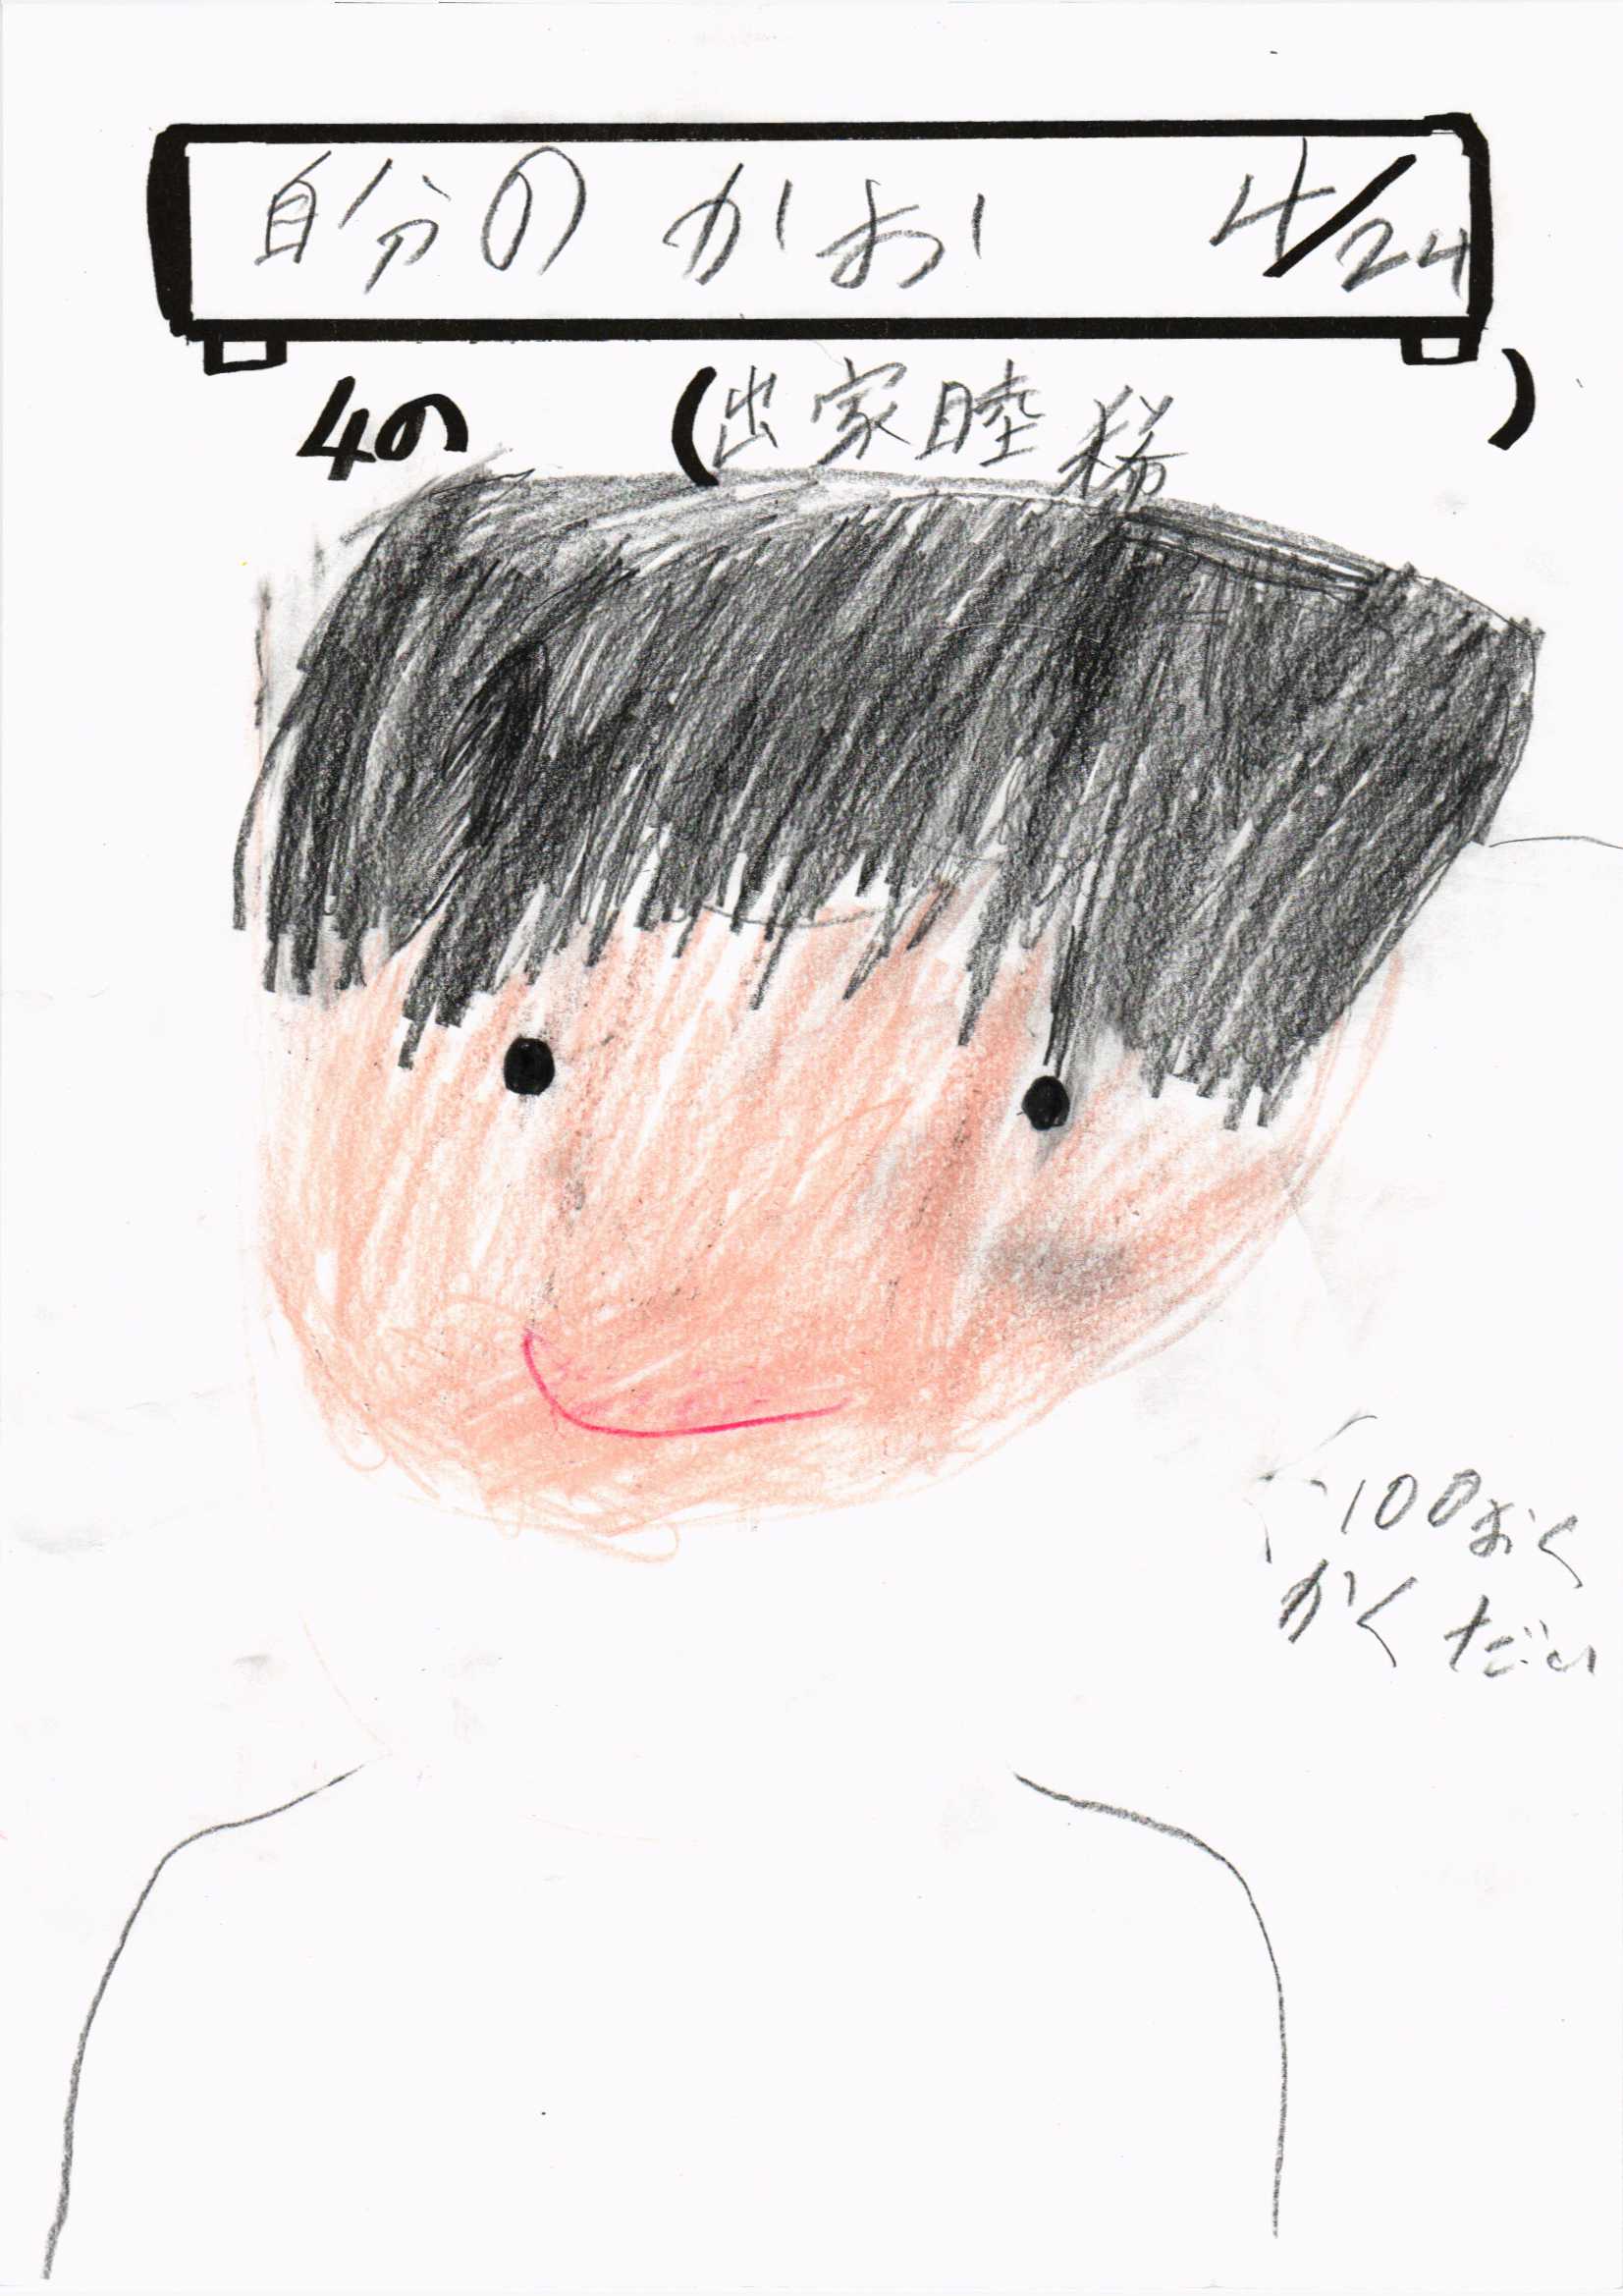 自分の かお 4/24
4の (出家睦稀)
100おく
かくだい